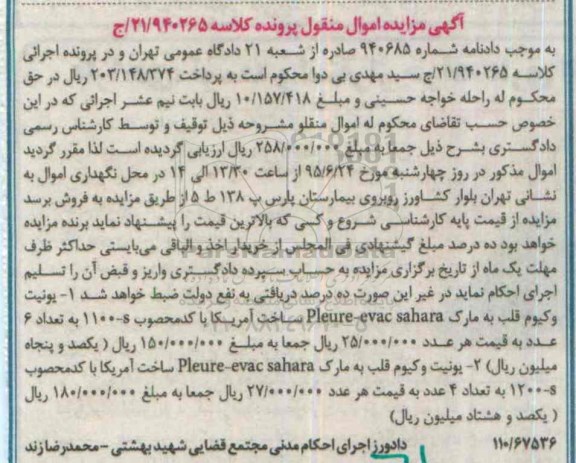 آگهی مزایده اموال منقول پرونده کلاسه ۲۱/۹۴۰۲۶۵/ج
به موجب دادنامه شماره ۹۴۰۶۸۵ صادره از شعبه ۲۱ دادگاه عمومی تهران و در پرونده اجرائی
کلاسه ۲۱/۹۴۰۲۶۵/ج سید مهدی بی دوا محکوم است به پرداخت ۲۰۳/۱۴۸/۳۷۴ ریال در حق
محکوم له راحله خواجه حسینی و مبلغ ۱۰/۱۵۷/۴۱۸ ریال بابت نیم عشر اجرائی که در این
خصوص حسب تقاضای محکوم له اموال منقلو مشروحه ذیل توقیف و توسط کارشناس رسمی
دادگستری بشرح ذیل جمعا به مبلغ ۲۵۸/۰۰۰/۰۰۰ ریال ارزیابی گردیده است لذا مقرر گردید
اموال مذکور در روز چهارشنبه مورخ ۹۵/۶/۲۴ از ساعت ۱۳/۳۰ الی ۱۴ در محل نگهداری اموال به
نشانی تهران بلوار کشاورز روبروی بیمارستان پارس پ ۱۳۸ ط ۵ از طریق مزایده به فروش برسد
مزایده از قیمت پایه کارشناسی شروع و کسی که بالاترین قیمت را پیشنهاد نماید برنده مزایده
خواهد بود ده درصد مبلغ پیشنهادی فی المجلس از خریدار اخذ و الباقی می‌بایستی حداکثر ظرف
مهلت یک ماه از تاریخ برگزاری مزایده به حساب سپرده دادگستری واریز و قبض آن را تسلیم
اجرای احکام نماید در غیر این صورت ده درصد دریافتی به نفع دولت ضبط خواهد شد ۱- یونیت
وکیوم قلب به مارک Pleure-evac sahara ساخت آمریکا با کدمحصوب s-۱۱۰۰ به تعداد ۶
عدد به قیمت هر عدد ۲۵/۰۰۰/۰۰۰ ریال جمعا به مبلغ ۱۵۰/۰۰۰/۰۰۰ ریال ( یکصد و پنجاه
میلیون ریال) ۲- یونیت وکیوم قلب به مارک Pleure-evac sahara ساخت آمریکا با کدمحصوب
s-۱۲۰۰ به تعداد ۴ عدد به قیمت هر عدد ۲۷/۰۰۰/۰۰۰ ریال جمعا به مبلغ ۱۸۰/۰۰۰/۰۰۰ ریال
( یکصد و هشتاد میلیون ریال)
۱۱۰/۶۷۵۳۶ دادورز اجرای احکام مدنی مجتمع قضایی شهید بهشتی - محمدرضا زند